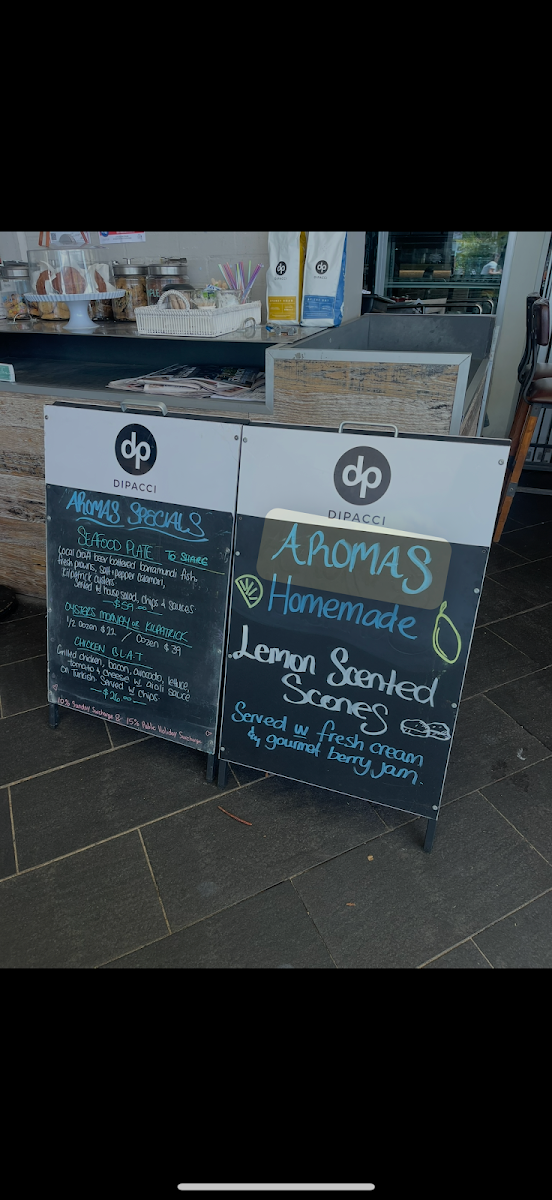 dp
DIPACCI
AROMAS SPECIALS
SEAFOOD PLATE TO SHARE
Local craft beer battered barramundi fish,
fresh prawns, salt & pepper calamari,
Kilpatrick oysters
Served w/ house salad, chips & sauces
$59
OYSTERS MORNAY OR KILPATRICK
1/2 Dozen $22 / Dozen $39
CHICKEN B.L.A.T
Grilled chicken, bacon, avocado, lettuce,
tomato & cheese w/ aioli sauce
on Turkish Served w/ chips
$26
10% Sunday Surcharge & 15% Public Holiday Surcharge
dp
DIPACCI
AROMAS
Homemade
Lemon Scented
Scones
Served w fresh cream
& gourmet berry jam.
dp
dp